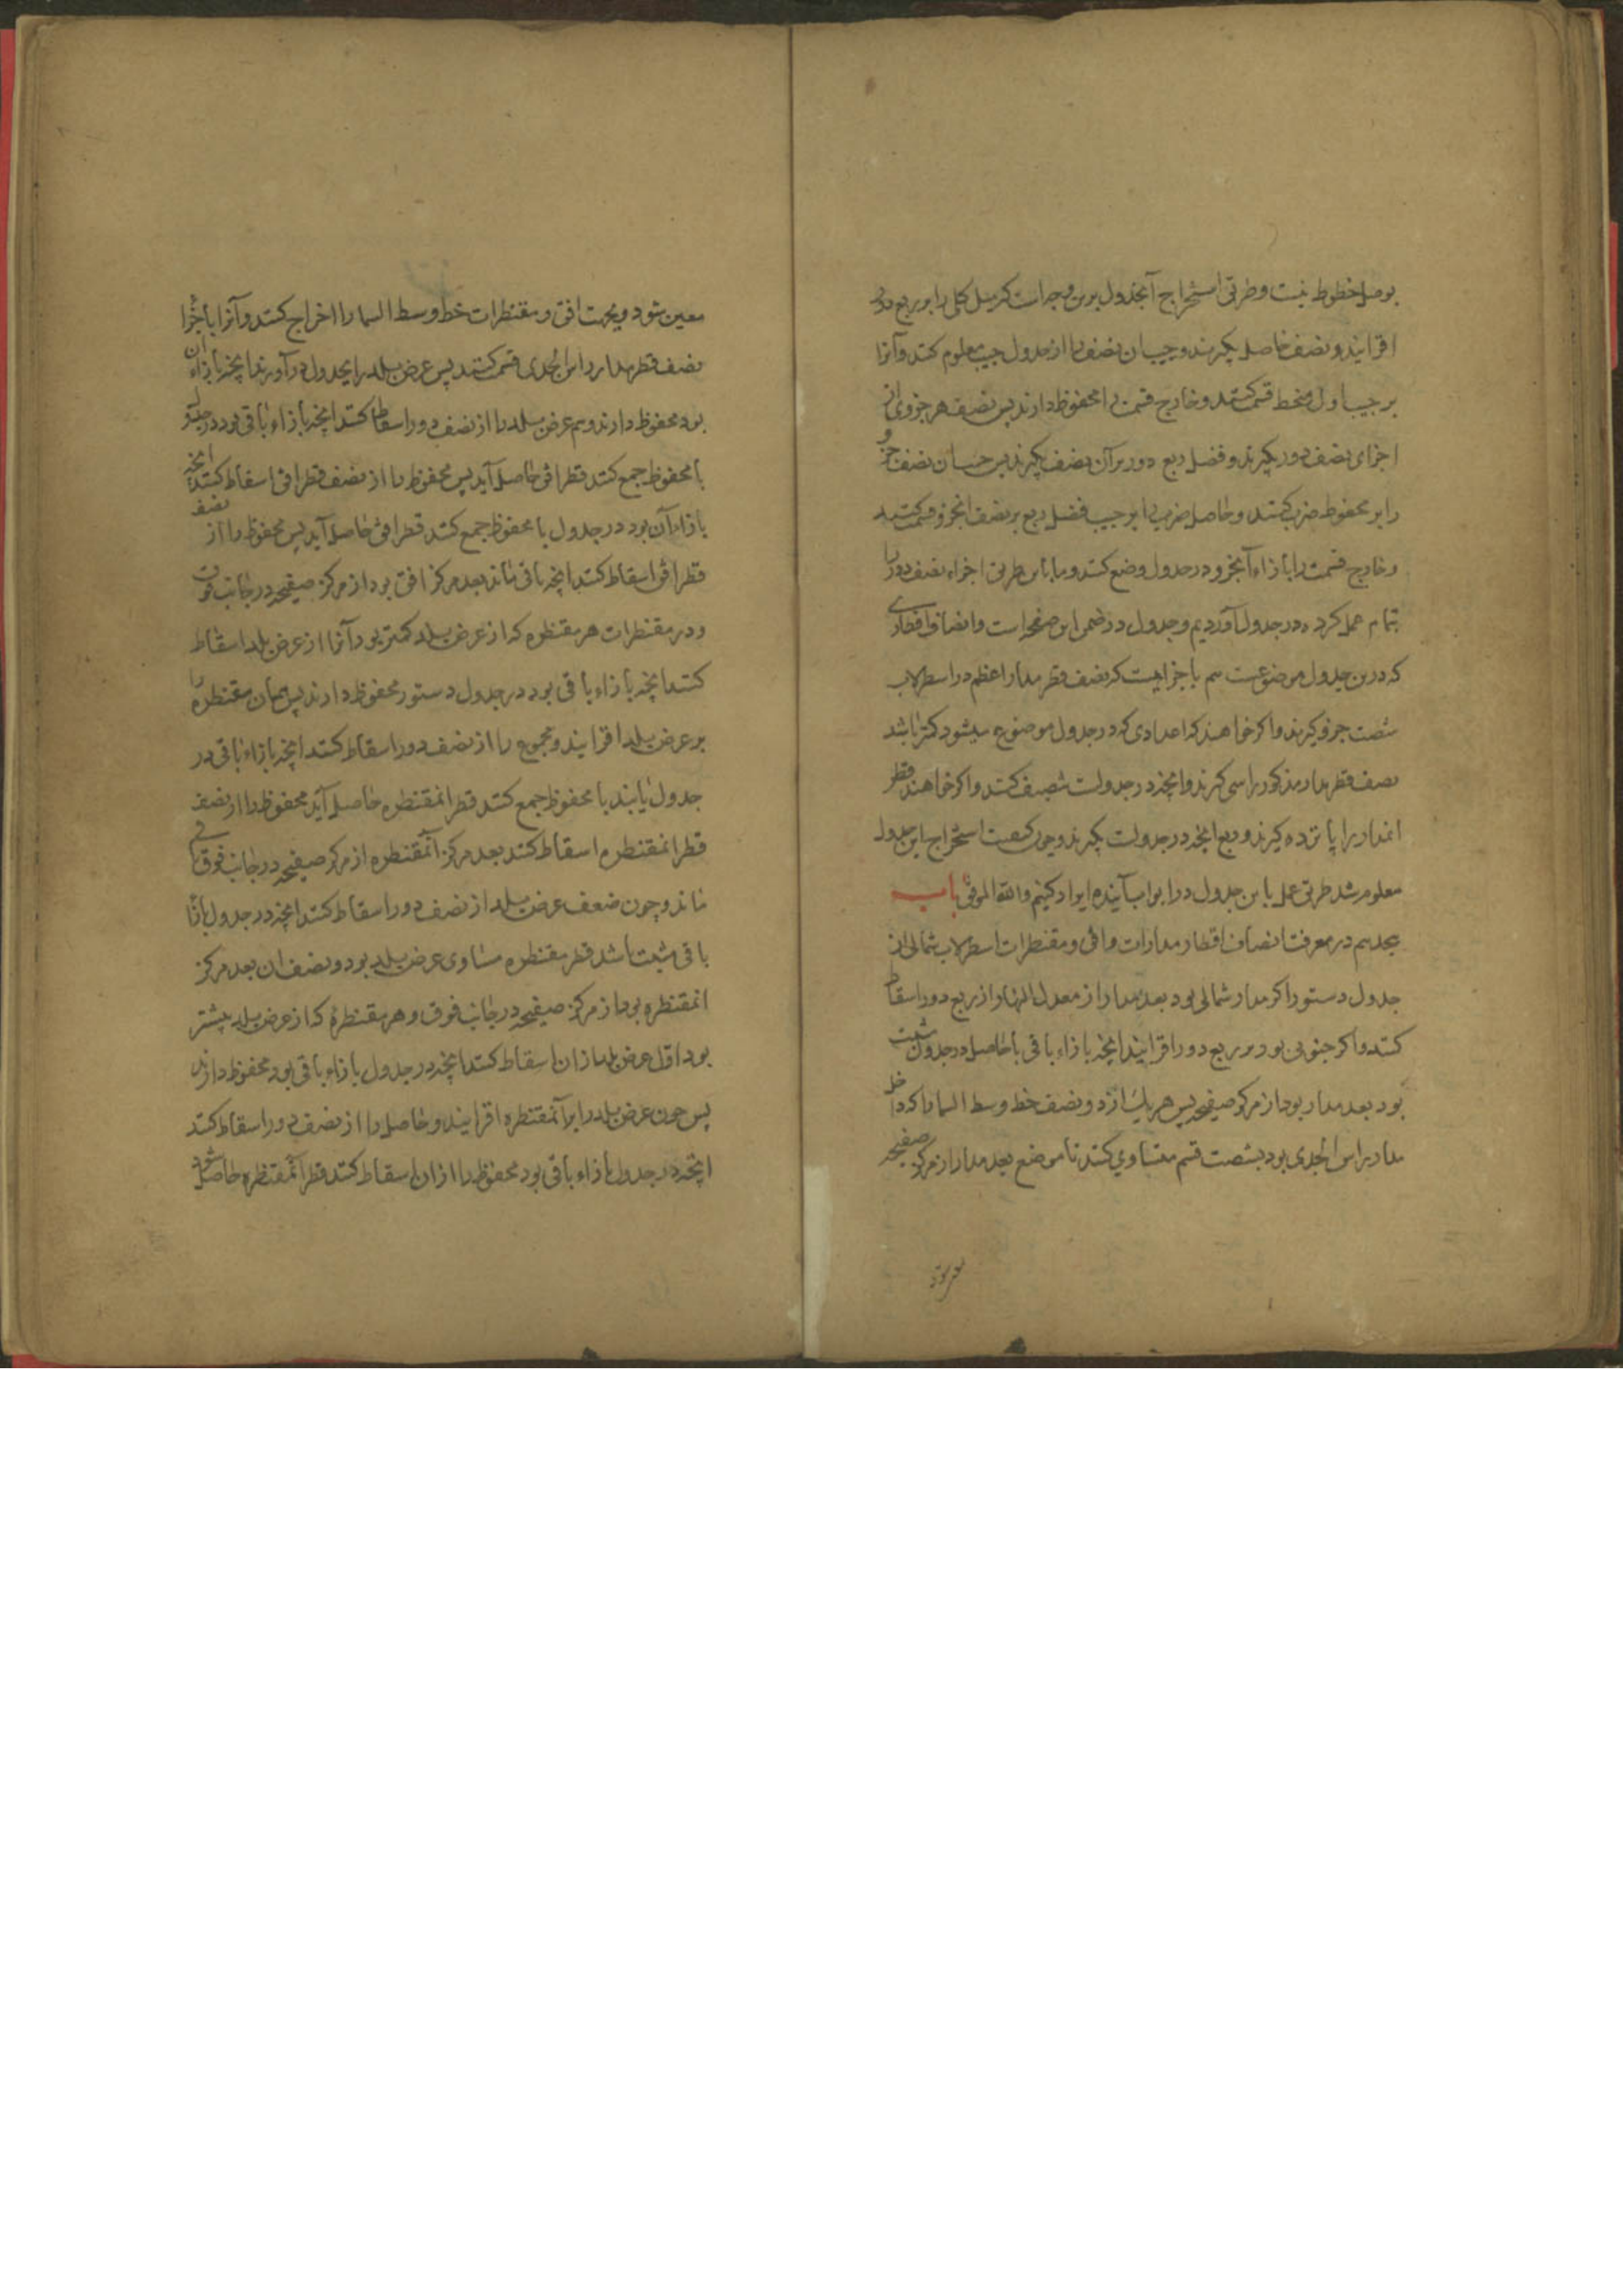 بوصل خطوط نیست و طریق استخراج آنجدول برین وجه است که میل کلی را بر ربع دور
افزایند و نصف حاصل بگیرند و جیب ان نصف را از جدول جیب معلوم کنند و آنرا
بر جیب اول منحط قسمت کنند و خارج قسمت را محفوظ دارند پس نصف هر جزوی از
اجزای نصف دور بگیرند و فضل ربع دور بر آن نصف بگیرند پس جیب ان نصف جزو
را بر محفوظ ضرب کنند و حاصل ضرب را بر جیب فضل ربع بر نصف انجزو قسمت کنند
و خارج قسمت را بازاء آنجزو در جدول وضع کنند و ما باین طریق اجزاء نصف دور را
تمام عمل کرده در جدول آوردیم و جدول در ضمن این صفحه است و انصاف اقطاری
که درین جدول موضوعست هم باجزاییست که نصف قطر مدار اعظم در اسطرلاب
شصت جزو گیرند و اگر خواهند که اعدادی که در جدول موضوع میشود کمتر باشد
نصف قطر مدار مذکور را سی گیرند و انچه در جدولست تنصیف کنند و اگر خواهند قطر
انمدار را پانزده گیرند و ربع انچه در جدولست بگیرند و چون کیفیت استخراج این جدول
معلوم شد طریق عمل باین جدول در ابواب آینده ایراد کنیم والله الموفق باب
هجدهم در معرفت انصاف اقطار مدارات و افق و مقنطرات اسطرلاب شمالی از
جدول دستور اگر مدار شمالی بود بعد مدار از معدل النهار از ربع دور اسقاط
کنند و اگر جنوبی بود بر ربع دور افزایند انچه بازاء باقی یا حاصل در جدول مثبت
بود بعد مدار بود از مرکز صفیحه پس هر یک از دو نصف خط وسط السما را که داخل
مدار راس الجدی بود بشصت قسم متساوی کنند تا موضع بعد مدار از مرکز صفیحه
معین شود و بجهت افق و مقنطرات خط وسط السما را اخراج کنند و آنرا باجزا
نصف قطر مدار راس الجدی قسمت کنند پس عرض بلد را بجدول درآورند انچه بازاء ان
بود محفوظ دارند و هم عرض بلد را از نصف دور اسقاط کنند انچه بازاء باقی بود در جدول
با محفوظ جمع کنند قطر افق حاصل آید پس محفوظ را از نصف قطر افق اسقاط کنند انچه
بازاء آن بود در جدول با محفوظ جمع کنند قطر افق حاصل آید پس محفوظ را از نصف
قطر افق اسقاط کنند انچه باقی ماند بعد مرکز افق بود از مرکز صفیحه در جانب فوق
و در مقنطرات هر مقنطره که از عرض بلد کمتر بود آنرا از عرض بلد اسقاط
کنند انچه بازاء باقی بود در جدول دستور محفوظ دارند پس همان مقنطره را
بر عرض بلد افزایند و مجموع را از نصف دور اسقاط کنند انچه بازاء باقی در
جدول یابند با محفوظ جمع کنند قطر انمقنطره حاصل آید محفوظ را از نصف
قطر انمقنطره اسقاط کنند بعد مرکز آنمقنطره از مرکز صفیحه در جانب فوق باقی
ماند و چون ضعف عرض بلد از نصف دور اسقاط کنند انچه در جدول بازاء
باقی مثبت باشد قطر مقنطره مساوی عرض بلد بود و نصف ان بعد مرکز
انمقنطره بود از مرکز صفیحه در جانب فوق و هر مقنطره که از عرض بلد بیشتر
بود اول عرض بلد از ان اسقاط کنند انچه در جدول بازاء باقی بود محفوظ دارند
پس چون عرض بلد را بر آنمقنطره افزایند و حاصل را از نصف دور اسقاط کنند
انچه در جدول بازاء باقی بود محفوظ را از ان اسقاط کنند قطر آنمقنطره حاصل شود